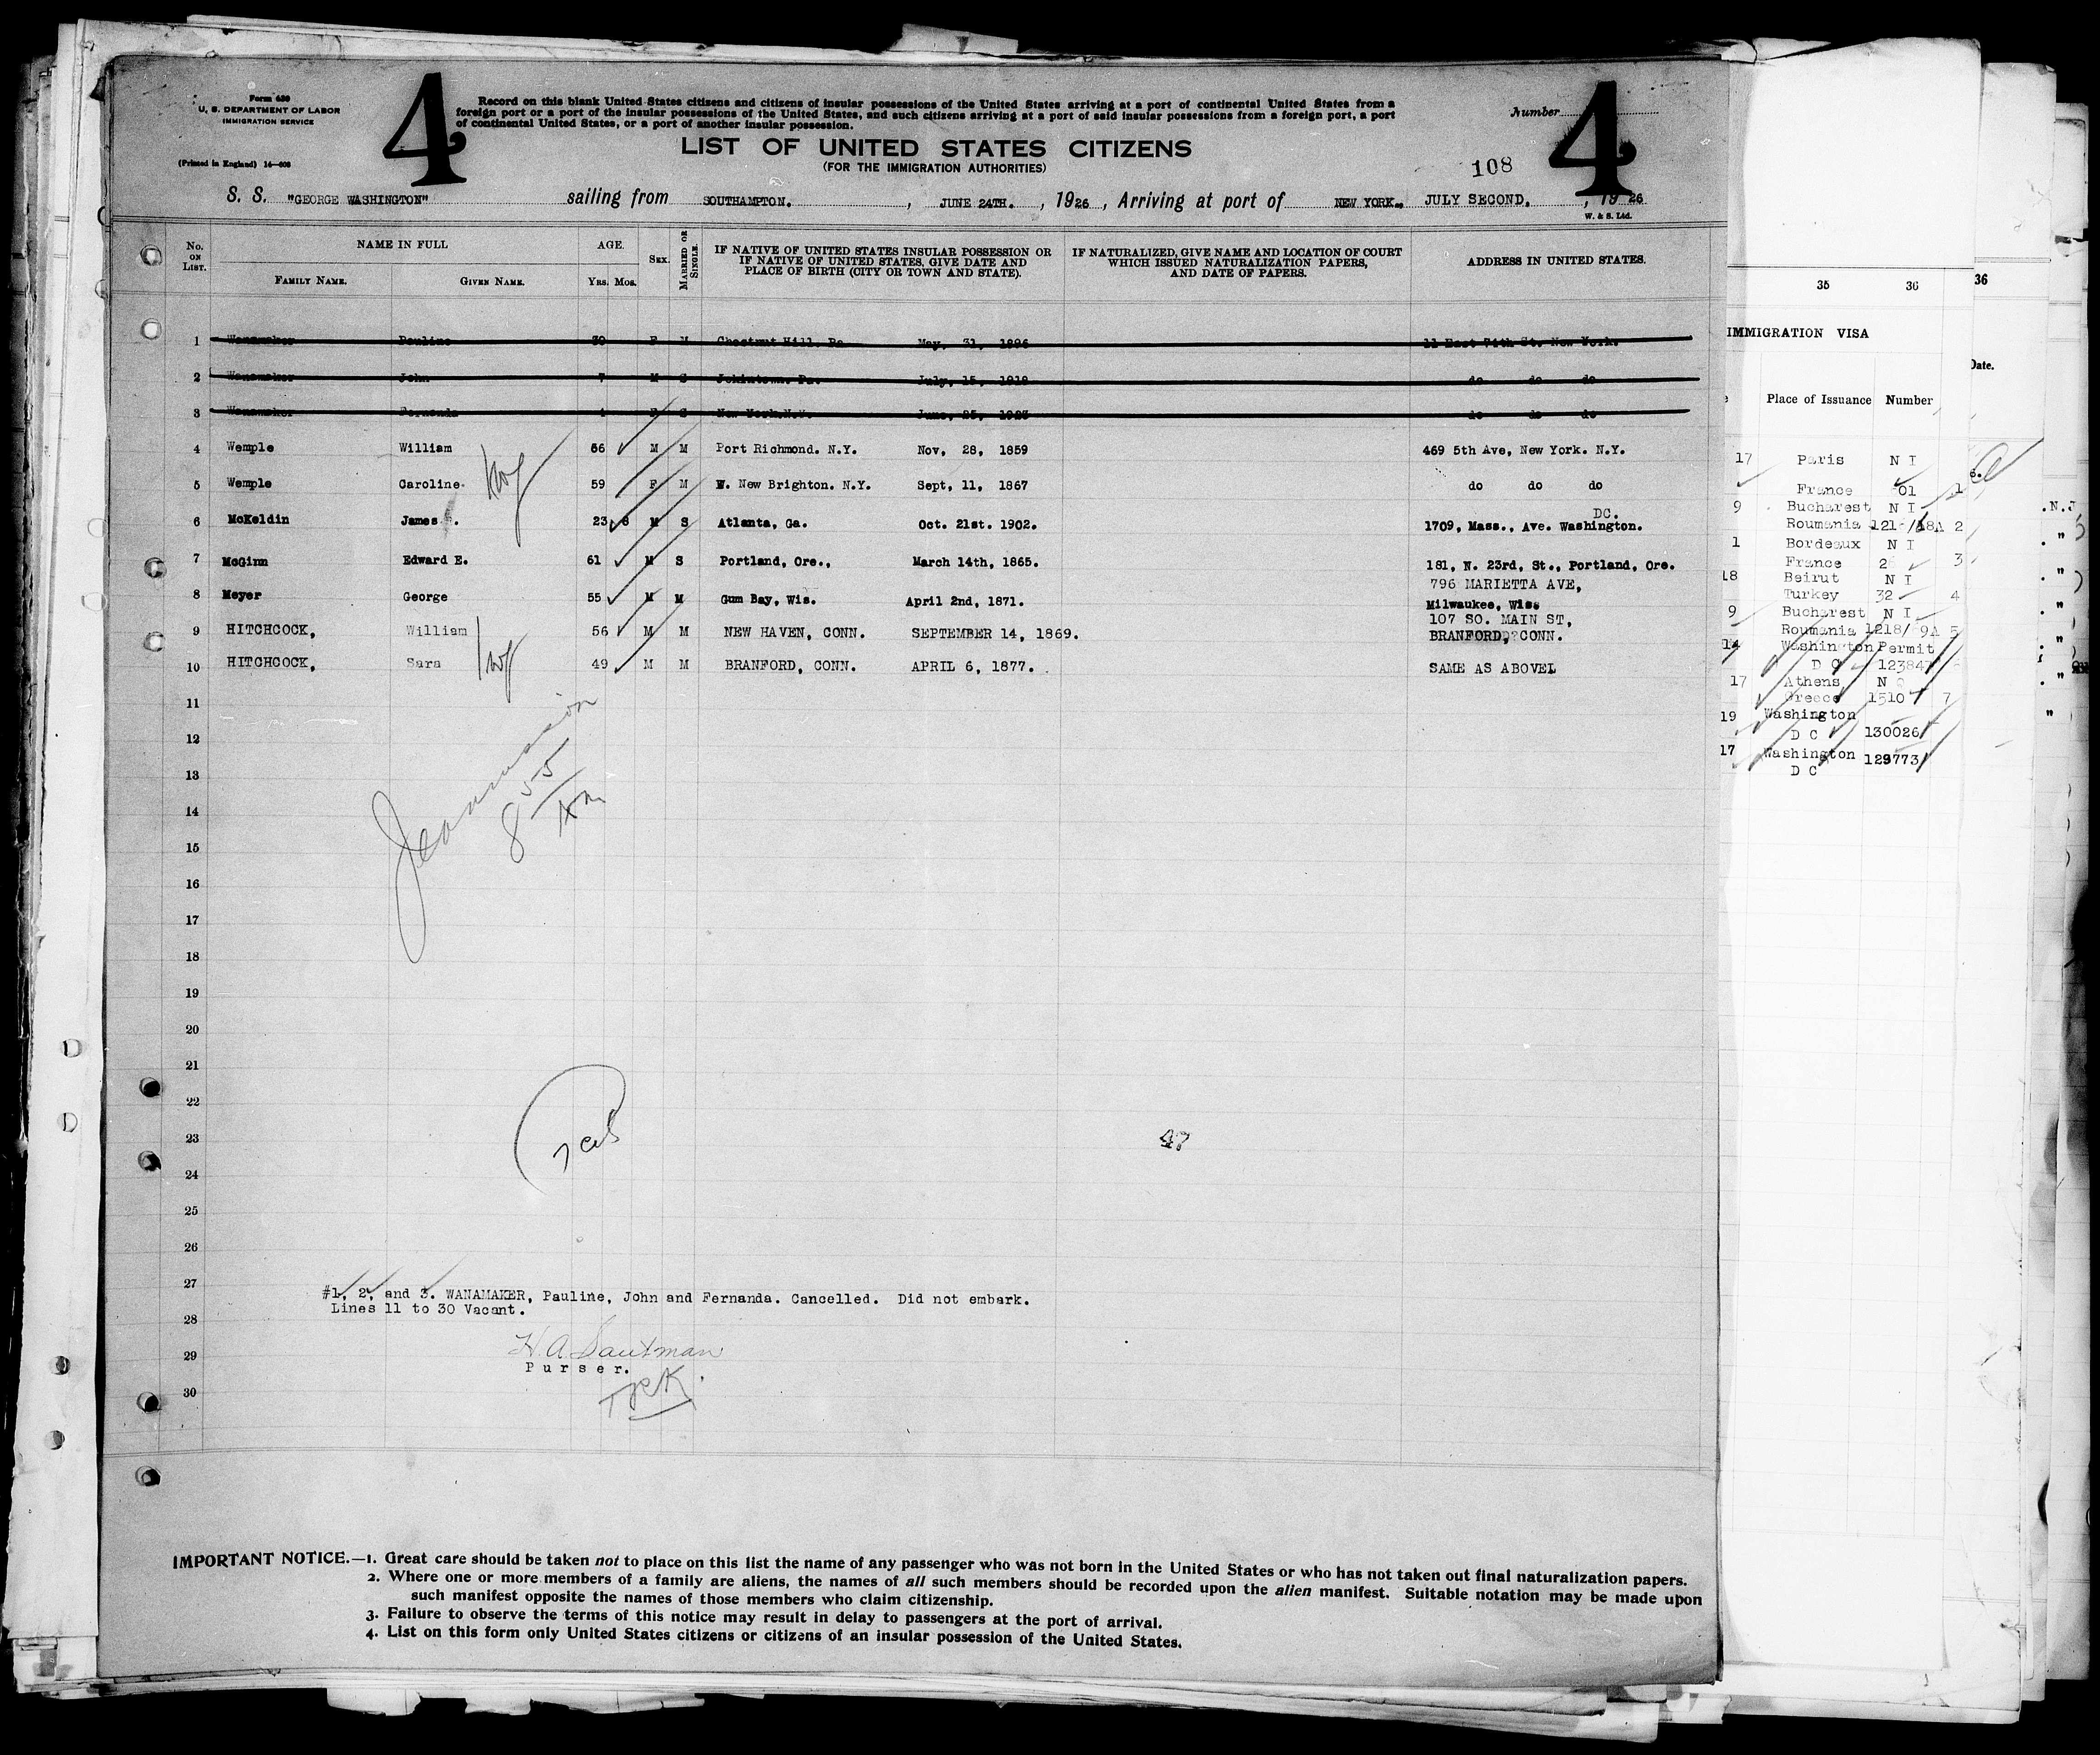 Form 630
U. S. DEPARTMENT OF LABOR
IMMIGRATION SERVICE
(Printed in England) 14—608
4
Record on this blank United States citizens and citizens of insular possessions of the United States arriving at a port of continental United States from a
foreign port or a port of the insular possessions of the United States, and such citizens arriving at a port of said insular possessions from a foreign port, a port
of continental United States, or a port of another insular possession.
Number
4
LIST OF UNITED STATES CITIZENS
(FOR THE IMMIGRATION AUTHORITIES)
108
S. S. "GEORGE WASHINGTON" sailing from SOUTHAMPTON. , JUNE 24TH. , 1926 , Arriving at port of NEW YORK. JULY SECOND. , 1926
W. & S. Ltd.
No. ON LIST. NAME IN FULL FAMILY NAME. GIVEN NAME. AGE. YRS. MOS. SEX. MARRIED OR SINGLE. IF NATIVE OF UNITED STATES INSULAR POSSESSION OR IF NATIVE OF UNITED STATES, GIVE DATE AND PLACE OF BIRTH (CITY OR TOWN AND STATE). IF NATURALIZED, GIVE NAME AND LOCATION OF COURT WHICH ISSUED NATURALIZATION PAPERS, AND DATE OF PAPERS. ADDRESS IN UNITED STATES.
1 Wanamaker Pauline 30 F M Chestnut Hill. Pa May, 31, 1896 11 East 74th St. New York.
2 Wanamaker John 7 M S July, 15, do do do
3 Wanamaker Fernanda F S New York.N.Y. June, 25, do do do
4 Wemple William 66 M M Port Richmond. N.Y. Nov, 28, 1859 469 5th Ave, New York. N.Y.
5 Wemple Caroline 59 F M W. New Brighton. N.Y. Sept, 11, 1867 do do do
6 McKeldin James 23 8 M S Atlanta, Ga. Oct. 21st. 1902. DC.
1709, Mass., Ave. Washington.
7 McGinn Edward E. 61 M S Portland, Ore., March 14th, 1865. 181, N. 23rd, St., Portland, Ore.
8 Meyer George 55 M M Gum Bay, Wis. April 2nd, 1871. 796 MARIETTA AVE,
Milwaukee, Wis.
9 HITCHCOCK, William 56 M M NEW HAVEN, CONN. SEPTEMBER 14, 1869. 107 SO. MAIN ST,
BRANFORD, CONN.
10 HITCHCOCK, Sara 49 M M BRANFORD, CONN. APRIL 6, 1877. SAME AS ABOVE
11
12
13
14
15
16
17
18
19
20
21
22
23
24
25
26
27
28
29
30
8 55
AM
47
#1, 2, and 3. WANAMAKER, Pauline, John and Fernanda. Cancelled. Did not embark.
Lines 11 to 30 Vacant.
Purser.
IMPORTANT NOTICE.—1. Great care should be taken not to place on this list the name of any passenger who was not born in the United States or who has not taken out final naturalization papers.
2. Where one or more members of a family are aliens, the names of all such members should be recorded upon the alien manifest. Suitable notation may be made upon
such manifest opposite the names of those members who claim citizenship.
3. Failure to observe the terms of this notice may result in delay to passengers at the port of arrival.
4. List on this form only United States citizens or citizens of an insular possession of the United States.
35 36
IMMIGRATION VISA
Place of Issuance Number
17 Paris N I
France 01 1
9 Bucharest N I
Roumania 2
1 Bordeaux N I
France 3
18 Beirut N I
Turkey 32 4
9 Bucharest N I
Roumania 5
14 Washington Permit
D C
17 Athens N
Greece 1510 7
19 Washington
D C 130026
17 Washington 129773
D C
36
Date.